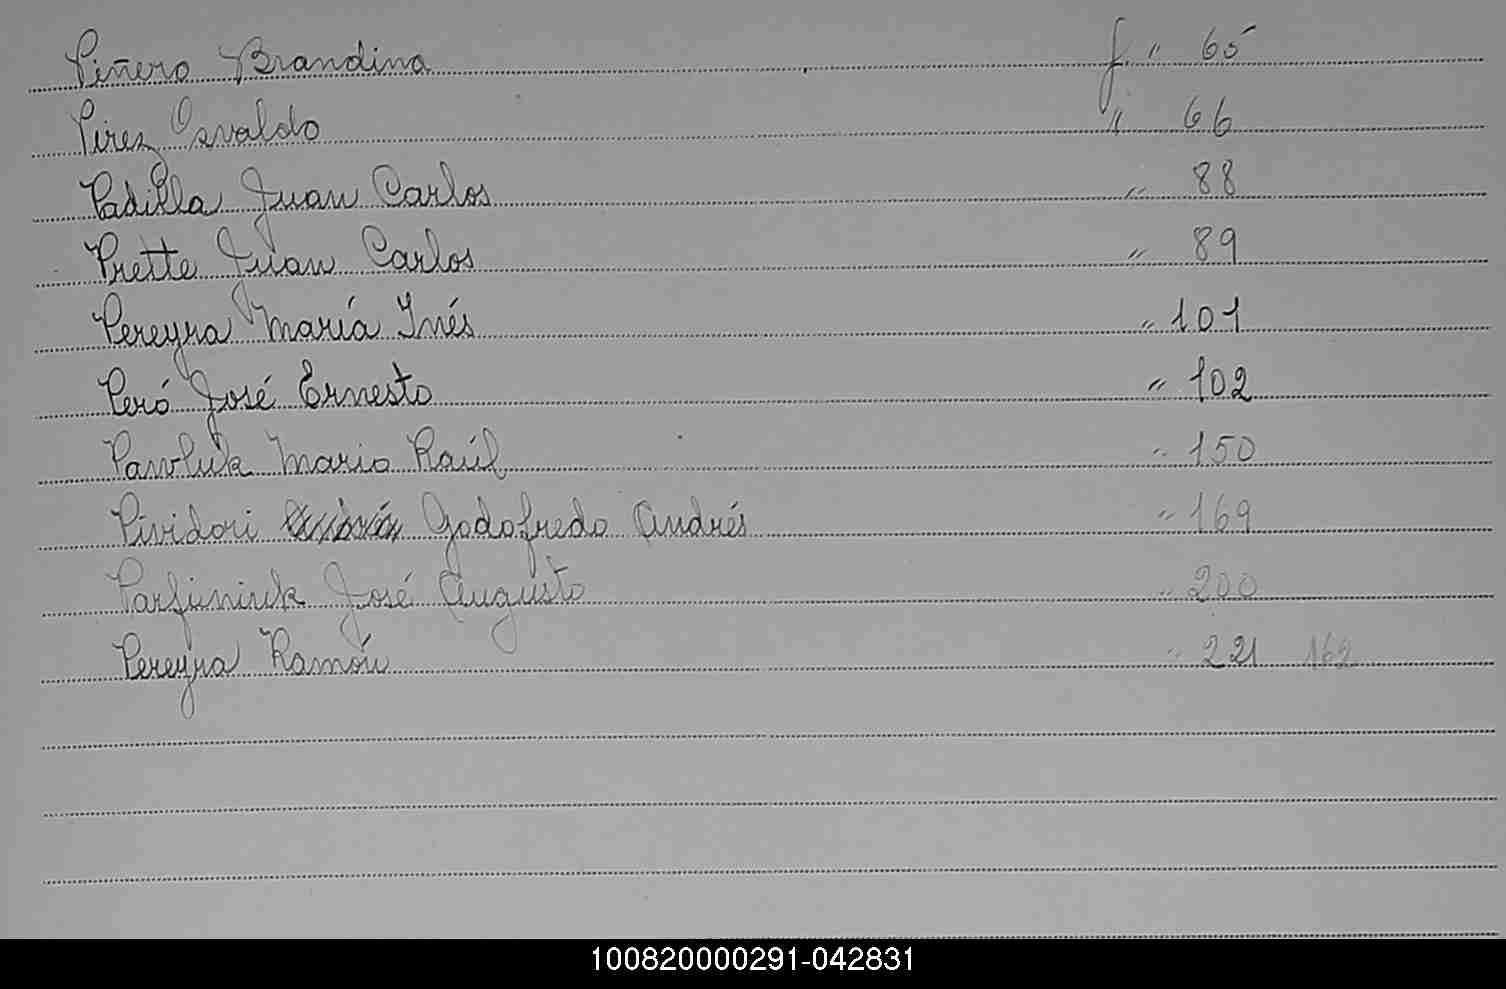 Piñero Brandina f. " 65
Pirez Osvaldo " 66
Padilla Juan Carlos " 88
Prette Juan Carlos " 89
Pereyra María Inés " 101
Peró José Ernesto " 102
Pawluk Mario Raúl " 150
Pividori Godofredo Andrés " 169
Parfiniuk José Augusto " 200
Pereyra Ramón " 221 162
100820000291-042831